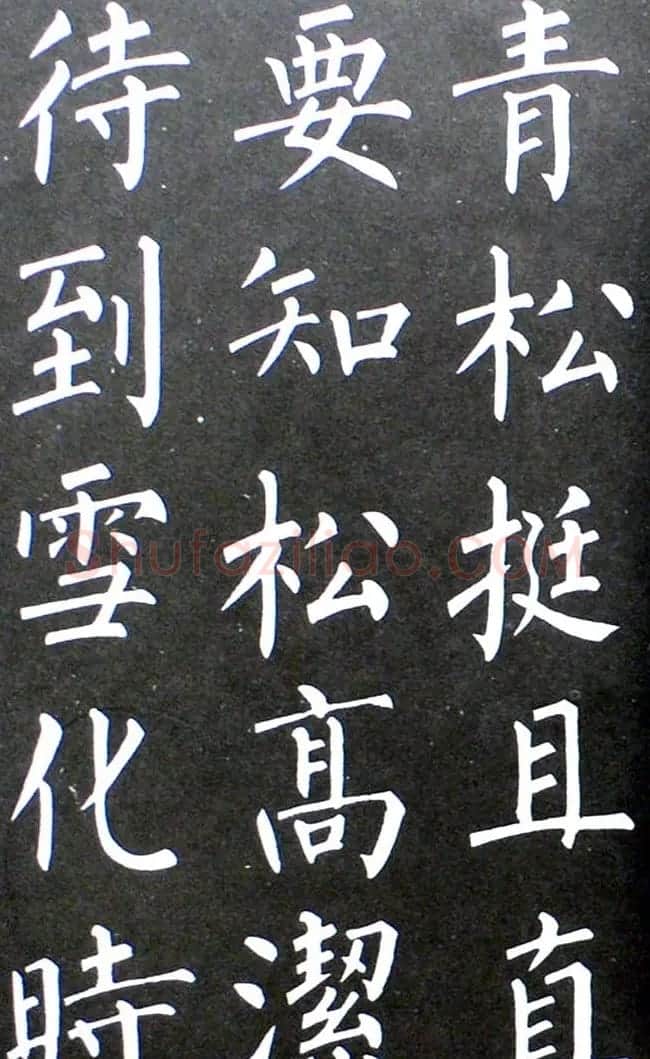 青松挺且直
要知松高潔
待到雪化時
Shufaziliao.COM